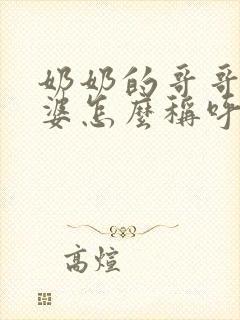 奶奶的哥哥
婆怎麼稱呼
高煊